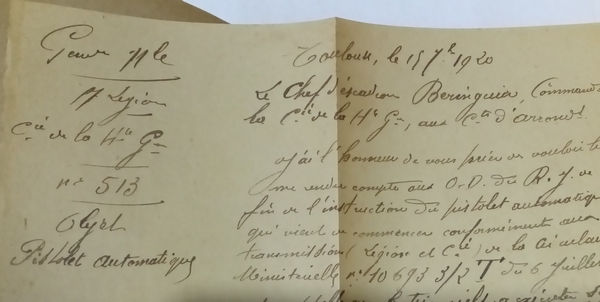 Gend. Nle
17e Légion
Cie de la Hte Gne
n° 513
Objet
Pistolet automatique
Toulouse, le 15 7bre 1920
Le Chef d'escadron Beringuier, Command
la Cie de la Hte Gne, aux Cts d'arrondt
J'ai l'honneur de vous prier de vouloir b
me rendre compte aux O.D. du R. J. de
fin de l'instruction du pistolet automatique
qui vient de commencer conformément aux
transmission (Légion et Cie) de la Circulai
Ministérielle n° 10693 3/2 T du 6 Juillet